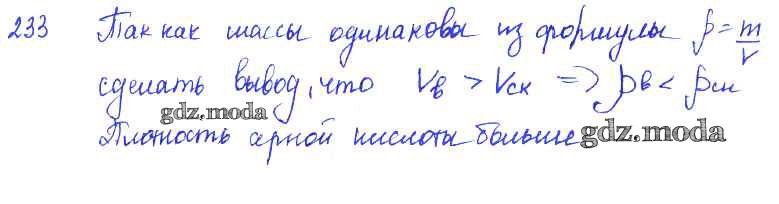 233 Так как массы одинаковы из формулы ρ = m/V
сделать вывод, что Vв > Vск => ρв < ρск
gdz.moda
Плотность серной кислоты больше gdz.moda